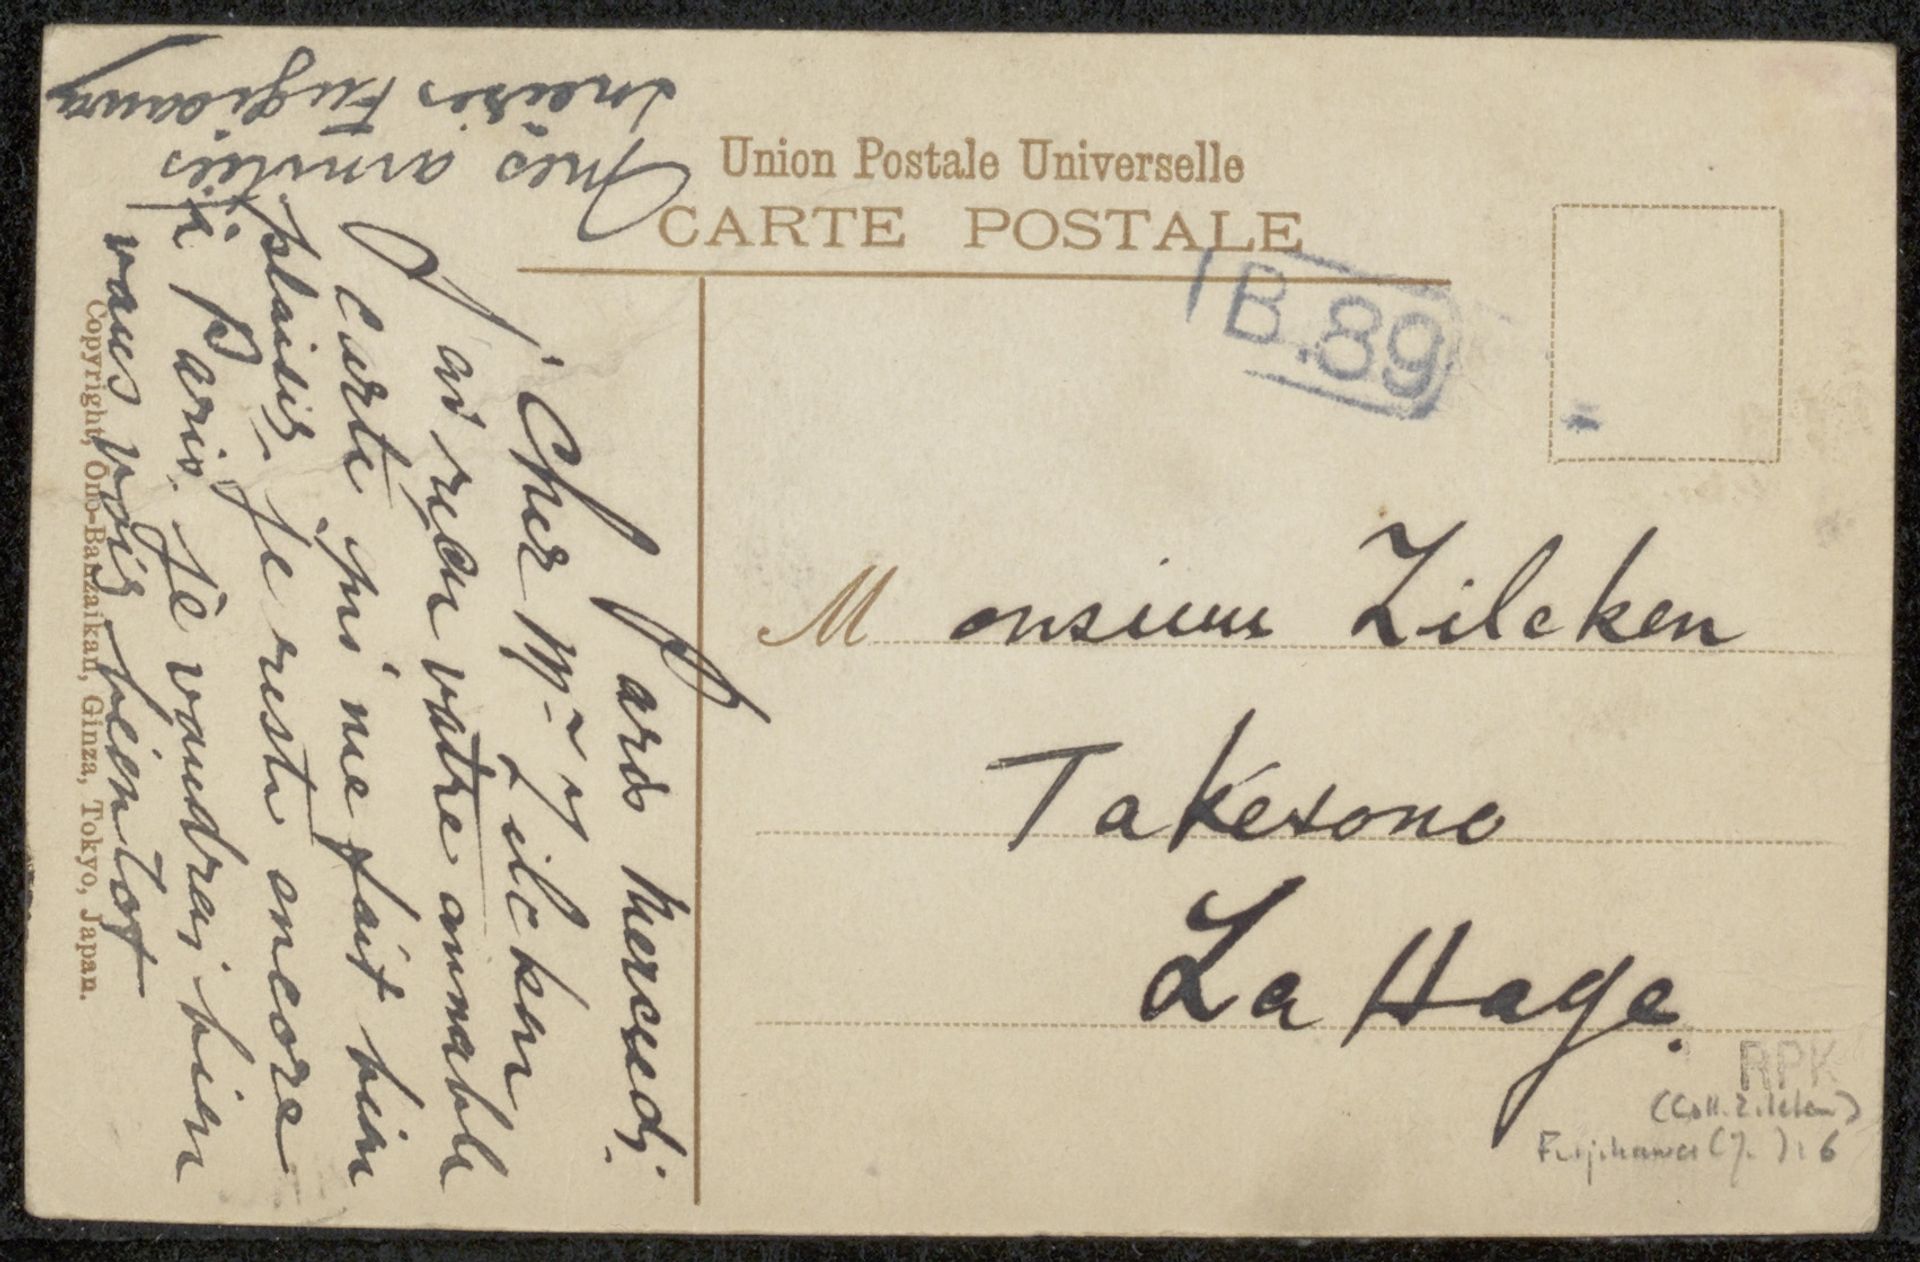 Union Postale Universelle
CARTE POSTALE
B.89
Monsieur Zilcken
Takesono
La Haye.
RPK
(Coll. Zilcken)
Fujikawa (J. ): 6
Paris Mercredi
Cher Mr Zilcken
J'ai reçu votre aimable
carte, qui me fait bien
plaisir. Je reste encore
à Paris. Je voudrai bien
vous voir bientot
mes amitiés
Fugicawa
Copyright, Ono-Banzaikan, Ginza, Tokyo, Japan.